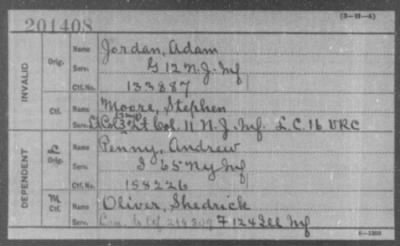 (3-88-4)
201408
INVALID
Orig.
Name Jordan, Adam
Serv. G 12 N.J. Inf
Ctf. No. 133887
Ctf.
Name Moore, Stephen
Serv. Lt Col. 11 N.J. Inf. L.C. 16 VRC
DEPENDENT
L Orig.
Name Penny, Andrew
Serv. I 65 Ny Inf
Ctf. No. 158226
M Ctf.
Name Oliver, Shedrick
Serv. F 124 Ill Inf